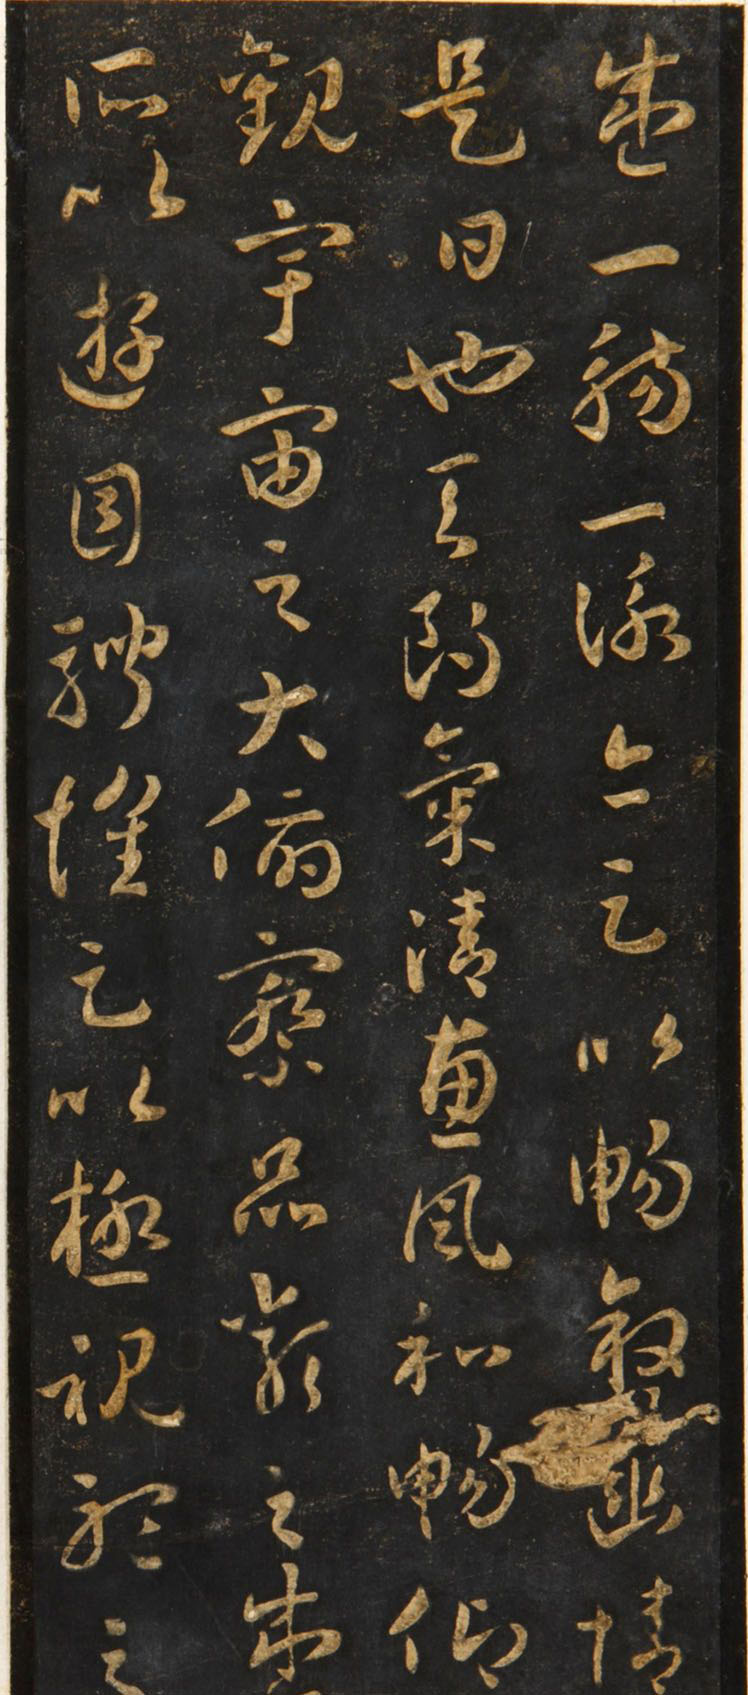 盛一觴一詠亦足以暢敘幽情
是日也天朗氣清惠風和暢仰
觀宇宙之大俯察品類之盛
所以遊目騁懷足以極視聽之